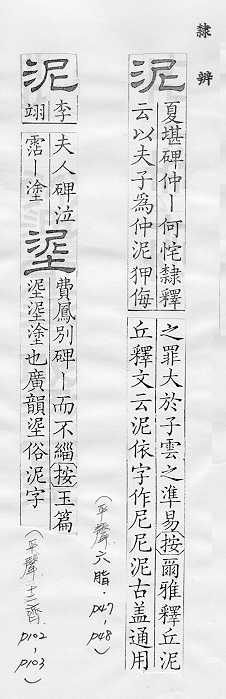 隸辨
泥
夏堪碑仲丨何恠隸釋
云以夫子爲仲泥狎侮
之罪大於子雲之準易按爾雅釋丘泥
丘釋文云泥依字作尼尼泥古盖通用
(平聲 六脂. P47, P48)
泥
李
翊
夫人碑泣
霑丨塗
埿
費鳳別碑丨而不緇按玉篇
埿埿塗也廣韻埿俗泥字
(平聲 十二齊. P102, P103)